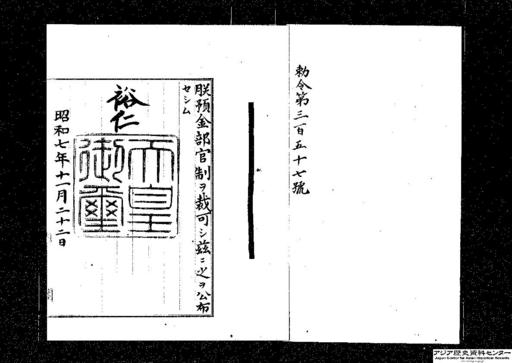 勅令第三百五十七號
朕預金部官制ヲ裁可シ玆ニ之ヲ公布
セシム
裕仁
天皇
御璽
昭和七年十一月二十二日
アジア歴史資料センター
Japan Center for Asian Historical Records